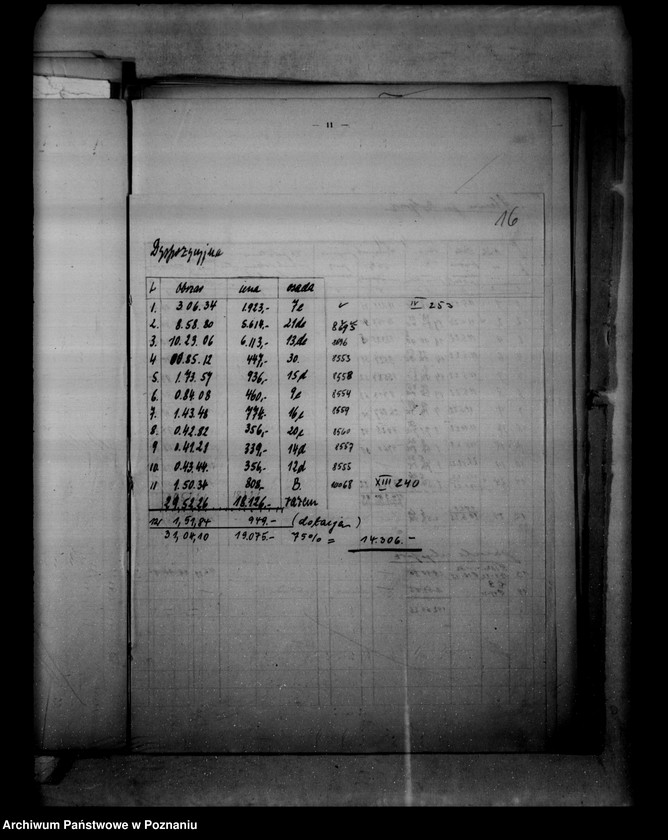 — 11 —
16
Dyspozycyjna
L. obszar cena osada
1. 3.06.34 1.923,- 7c ✓ IV 253
2. 8.58.80 5.619,- 21de 8695
3. 10.23.06 6.113,- 13,de
4 00.85.12 447,- 30. 8553
5. 1.73.57 936,- 15d 8558
6. 0.84.08 460,- 9c 8554
7. 1.43.48 774,- 16c 8559
8. 0.42.82 356,- 20c 8560
9 0.41.21 339,- 14d 8557
10. 0.43.44. 356,- 12d 8555
11 1.50.34 803,- B. 10068 XIII 240
29.52.26 18.126,- razem
12/ 1,51,84 949.- (dotacja)
31,04,10 19.075.- 75% = 14.306.-
Archiwum Państwowe w Poznaniu